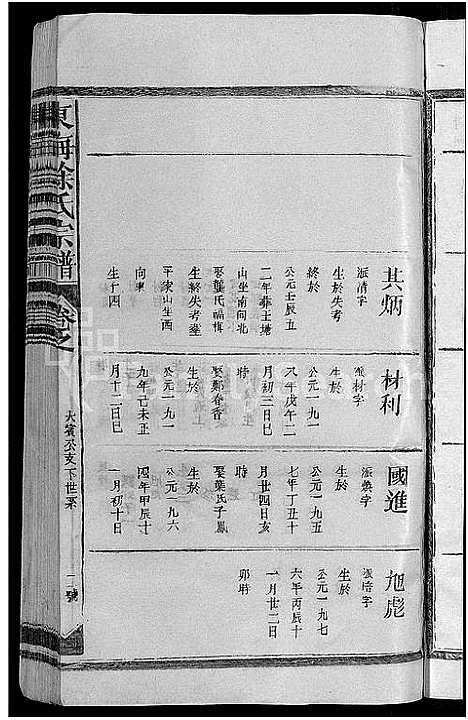 東海徐氏宗譜
卷之
大賓公支下世系
一號
其炳
派清字
生於失考
終於
公元壬辰五
二年葬土塘
山坐南向北
娶龔氏福梅
生終失考葬
平家山坐西
向東
生子四
材利
派材字
生於
公元一九一
八年戊午二
月初三日巳
時
娶鄭春香
生於
公元一九一
九年己未正
月十二日巳
國進
派榮字
生於
公元一九五
七年丁酉十
月廿四日亥
時
娶葉氏子鳳
生於
公元一九六
四年甲辰十
一月初十日
旭彪
派培字
生於
公元一九七
六年丙辰十
一月廿二日
卯時